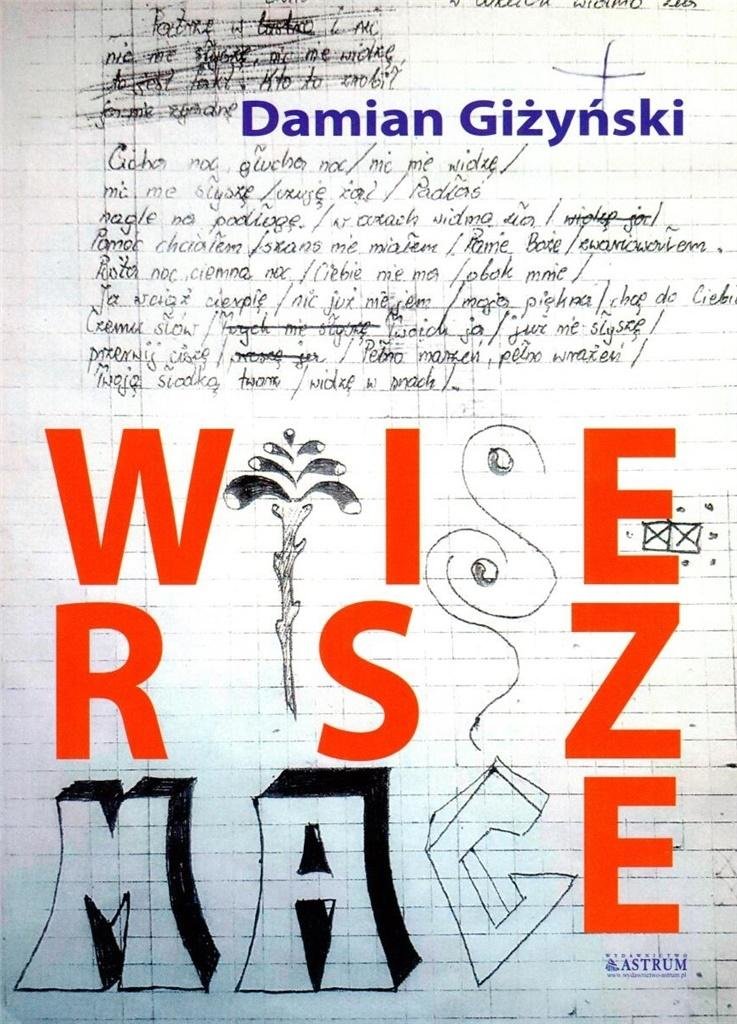 w oczach widma zła
Patrzę w lustro i nic
nic nie słyszę, nic nie widzę,
to jest fakt. Kto to zrobił?
ja nie zgadnę
Damian Giżyński
Cicha noc, głucha noc / nic nie widzę /
nic nie słyszę / czuję żal / Padłaś
nagle na podłogę. / w oczach widma zła / widzę ja /
Pomóc chciałem / szans nie miałem / Panie Boże / zwariowałem.
Pusta noc, ciemna noc / Ciebie nie ma / obok mnie /
Ja wciąż cierpię / nic już nie jem / moja piękna / chcę do Ciebi
Czemu słów / tych nie słyszę Twoich ja / już nie słyszę /
przerwij ciszę / proszę ja / Pełno marzeń, pełno wrażeń /
Twoją słodką twarz / widzę w snach /.
WIE
RSZ
E
MAG
WYDAWNICTWO
ASTRUM
www.wydawnictwo-astrum.pl